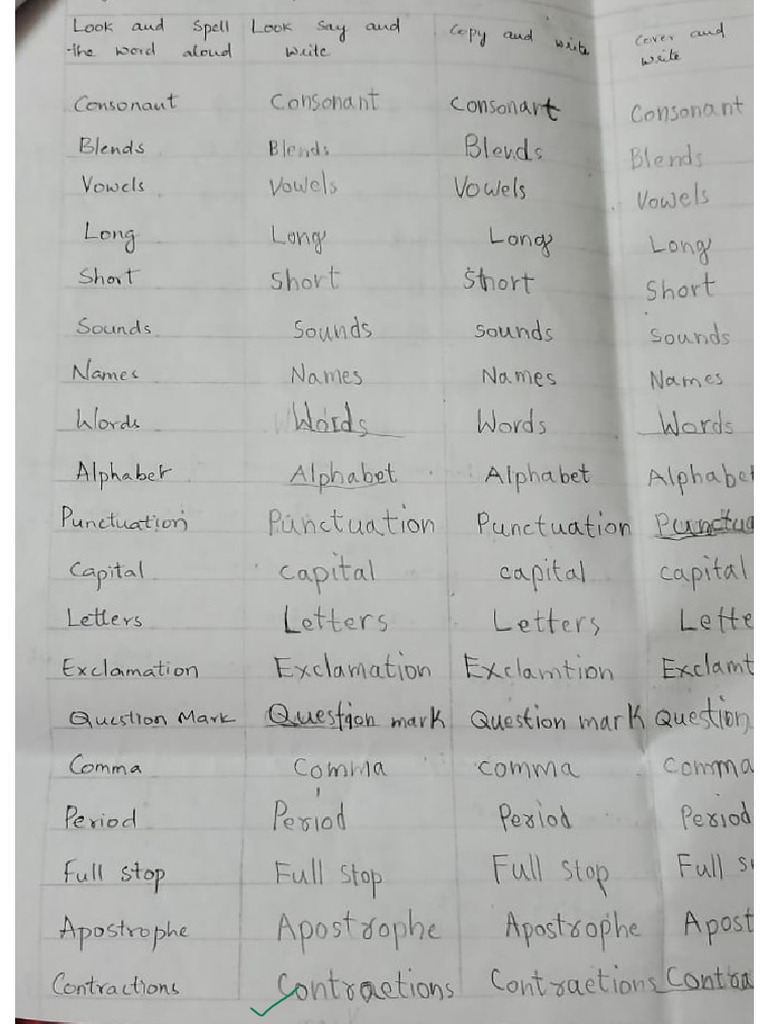 Look and Spell the word aloud Look Say and write Copy and write Cover and write
Consonant Consonant Consonant Consonant
Blends Blends Blends Blends
Vowels Vowels Vowels Vowels
Long Long Long Long
Short Short Short Short
Sounds Sounds sounds sounds
Names Names Names Names
Words Words Words Words
Alphabet Alphabet Alphabet Alphabet
Punctuation Punctuation Punctuation Punctua
Capital capital capital capital
Letters Letters Letters Lette
Exclamation Exclamation Exclamtion Exclamt
Question Mark Question mark Question mark Question
Comma Comma comma comma
Period Period Period Period
Full stop Full stop Full stop Full s
Apostrophe Apostrophe Apostrophe Apost
Contractions Contractions Contractions Contra